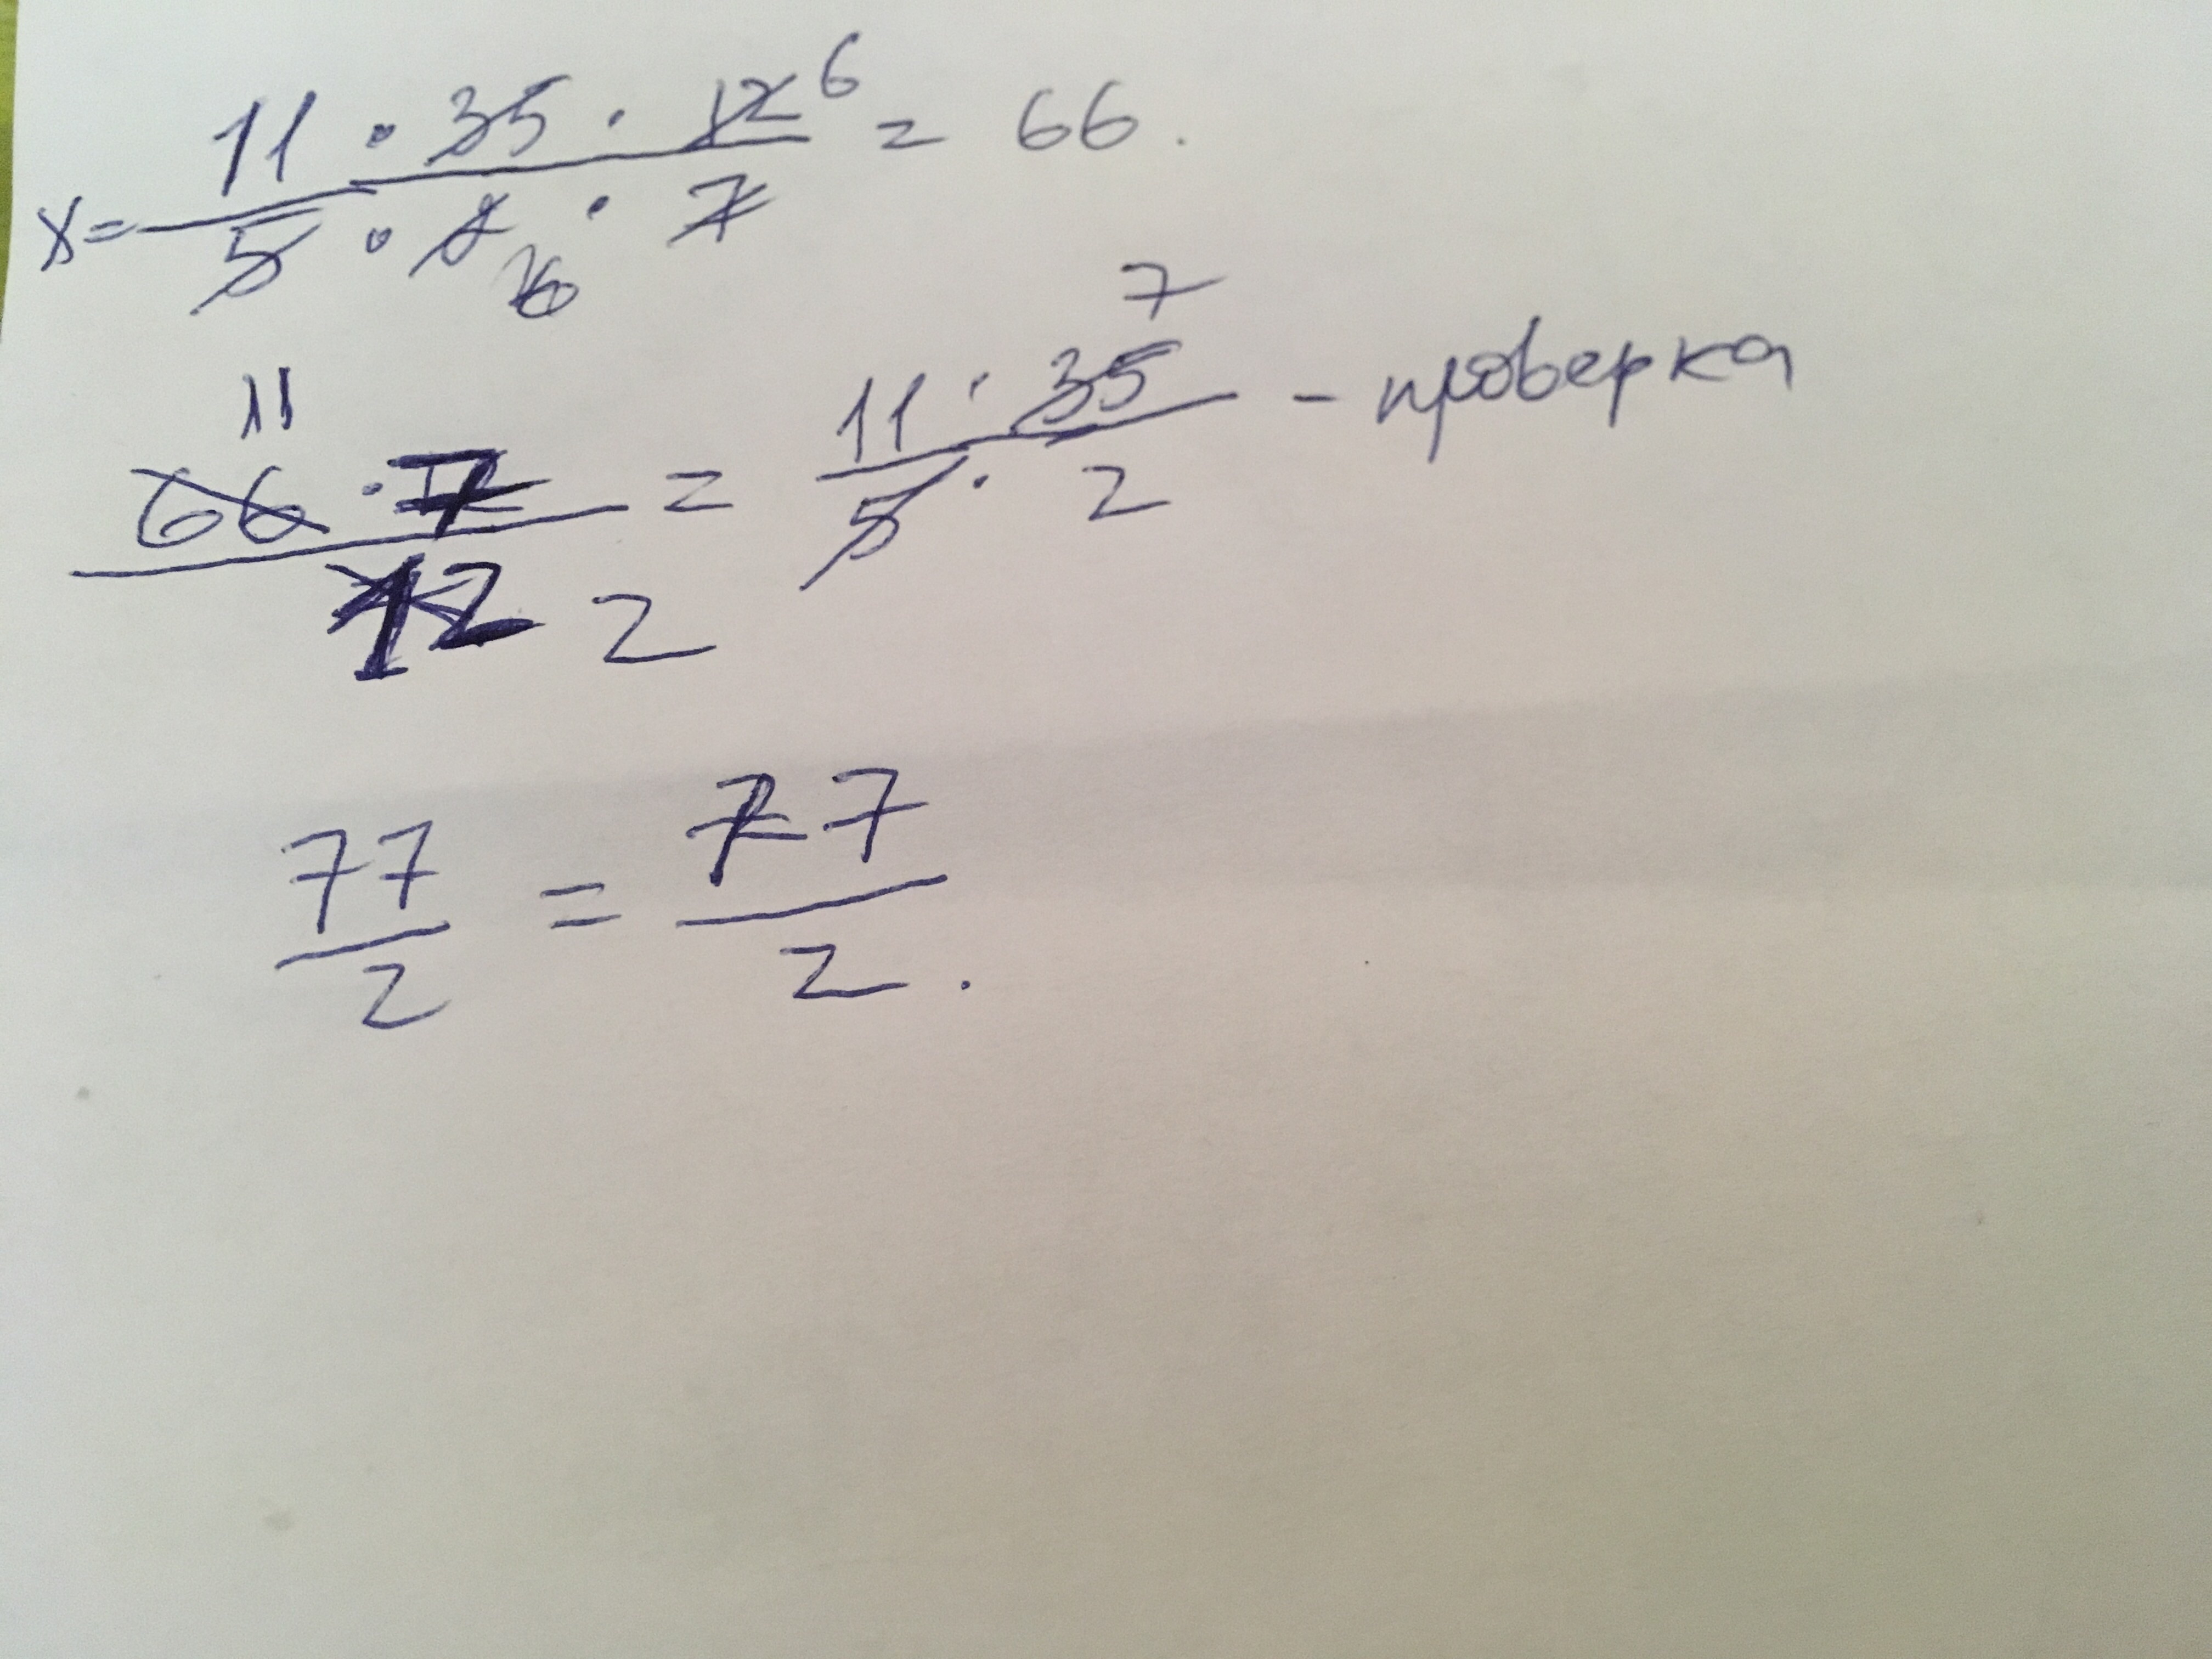 x = 11 · 35 · 12 6 / 5 · 2 · 7 = 66.
11 7
66 · 7 / 12 2 = 11 · 35 / 5 · 2 - проверка
77 / 2 = 77 / 2.